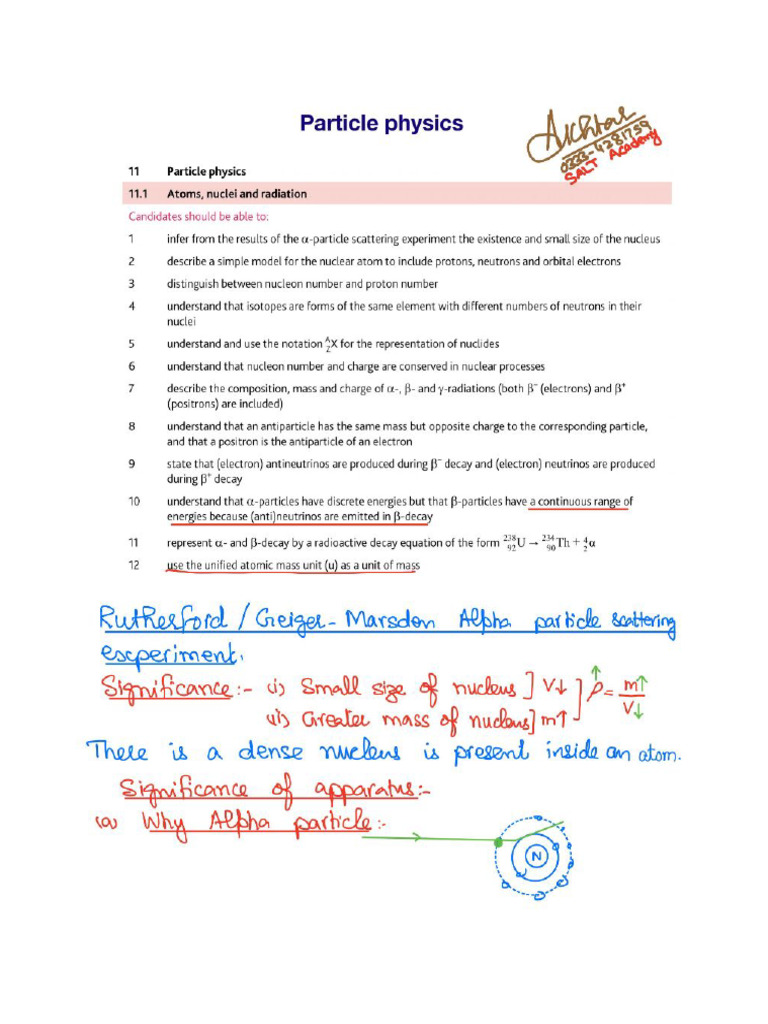 Particle physics
Akhtar
0333-4281759
SALT Academy
11 Particle physics
11.1 Atoms, nuclei and radiation
Candidates should be able to:
1 infer from the results of the α-particle scattering experiment the existence and small size of the nucleus
2 describe a simple model for the nuclear atom to include protons, neutrons and orbital electrons
3 distinguish between nucleon number and proton number
4 understand that isotopes are forms of the same element with different numbers of neutrons in their
nuclei
5 understand and use the notation ᴬ_ZX for the representation of nuclides
6 understand that nucleon number and charge are conserved in nuclear processes
7 describe the composition, mass and charge of α-, β- and γ-radiations (both β⁻ (electrons) and β⁺
(positrons) are included)
8 understand that an antiparticle has the same mass but opposite charge to the corresponding particle,
and that a positron is the antiparticle of an electron
9 state that (electron) antineutrinos are produced during β⁻ decay and (electron) neutrinos are produced
during β⁺ decay
10 understand that α-particles have discrete energies but that β-particles have a continuous range of
energies because (anti)neutrinos are emitted in β-decay
11 represent α- and β-decay by a radioactive decay equation of the form ²³⁸₉₂U → ²³⁴₉₀Th + ⁴₂α
12 use the unified atomic mass unit (u) as a unit of mass
Rutherford / Geiger-Marsdon Alpha particle scattering
experiment.
Significance:- (i) Small size of nucleus] V↓ ] ρ↑ = m↑/V↓
(ii) Greater mass of nucleus] m↑
There is a dense nucleus is present inside an atom.
Significance of apparatus:-
(a) Why Alpha particle:-
N